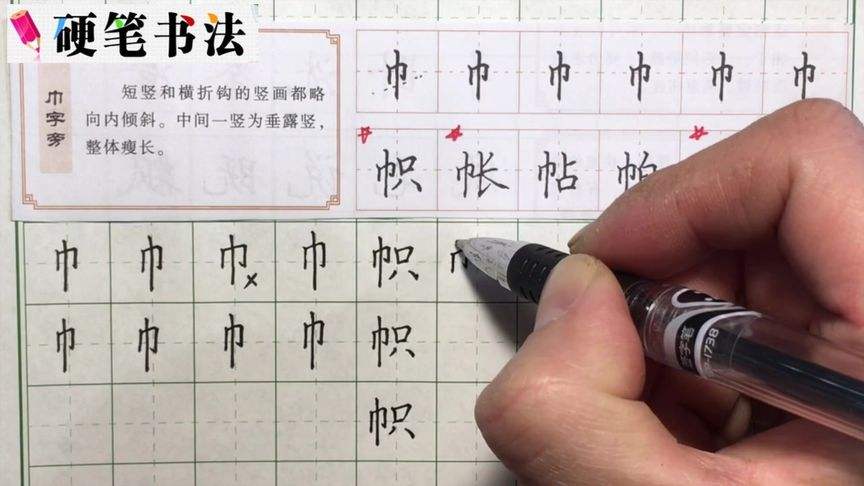 硬笔书法
巾字旁
短竖和横折钩的竖画都略
向内倾斜。中间一竖为垂露竖，
整体瘦长。
巾 巾 巾 巾 巾 巾
帜 帐 帖 帕
巾 巾 巾 巾 帜
巾 巾 巾 巾 帜
帜
1738